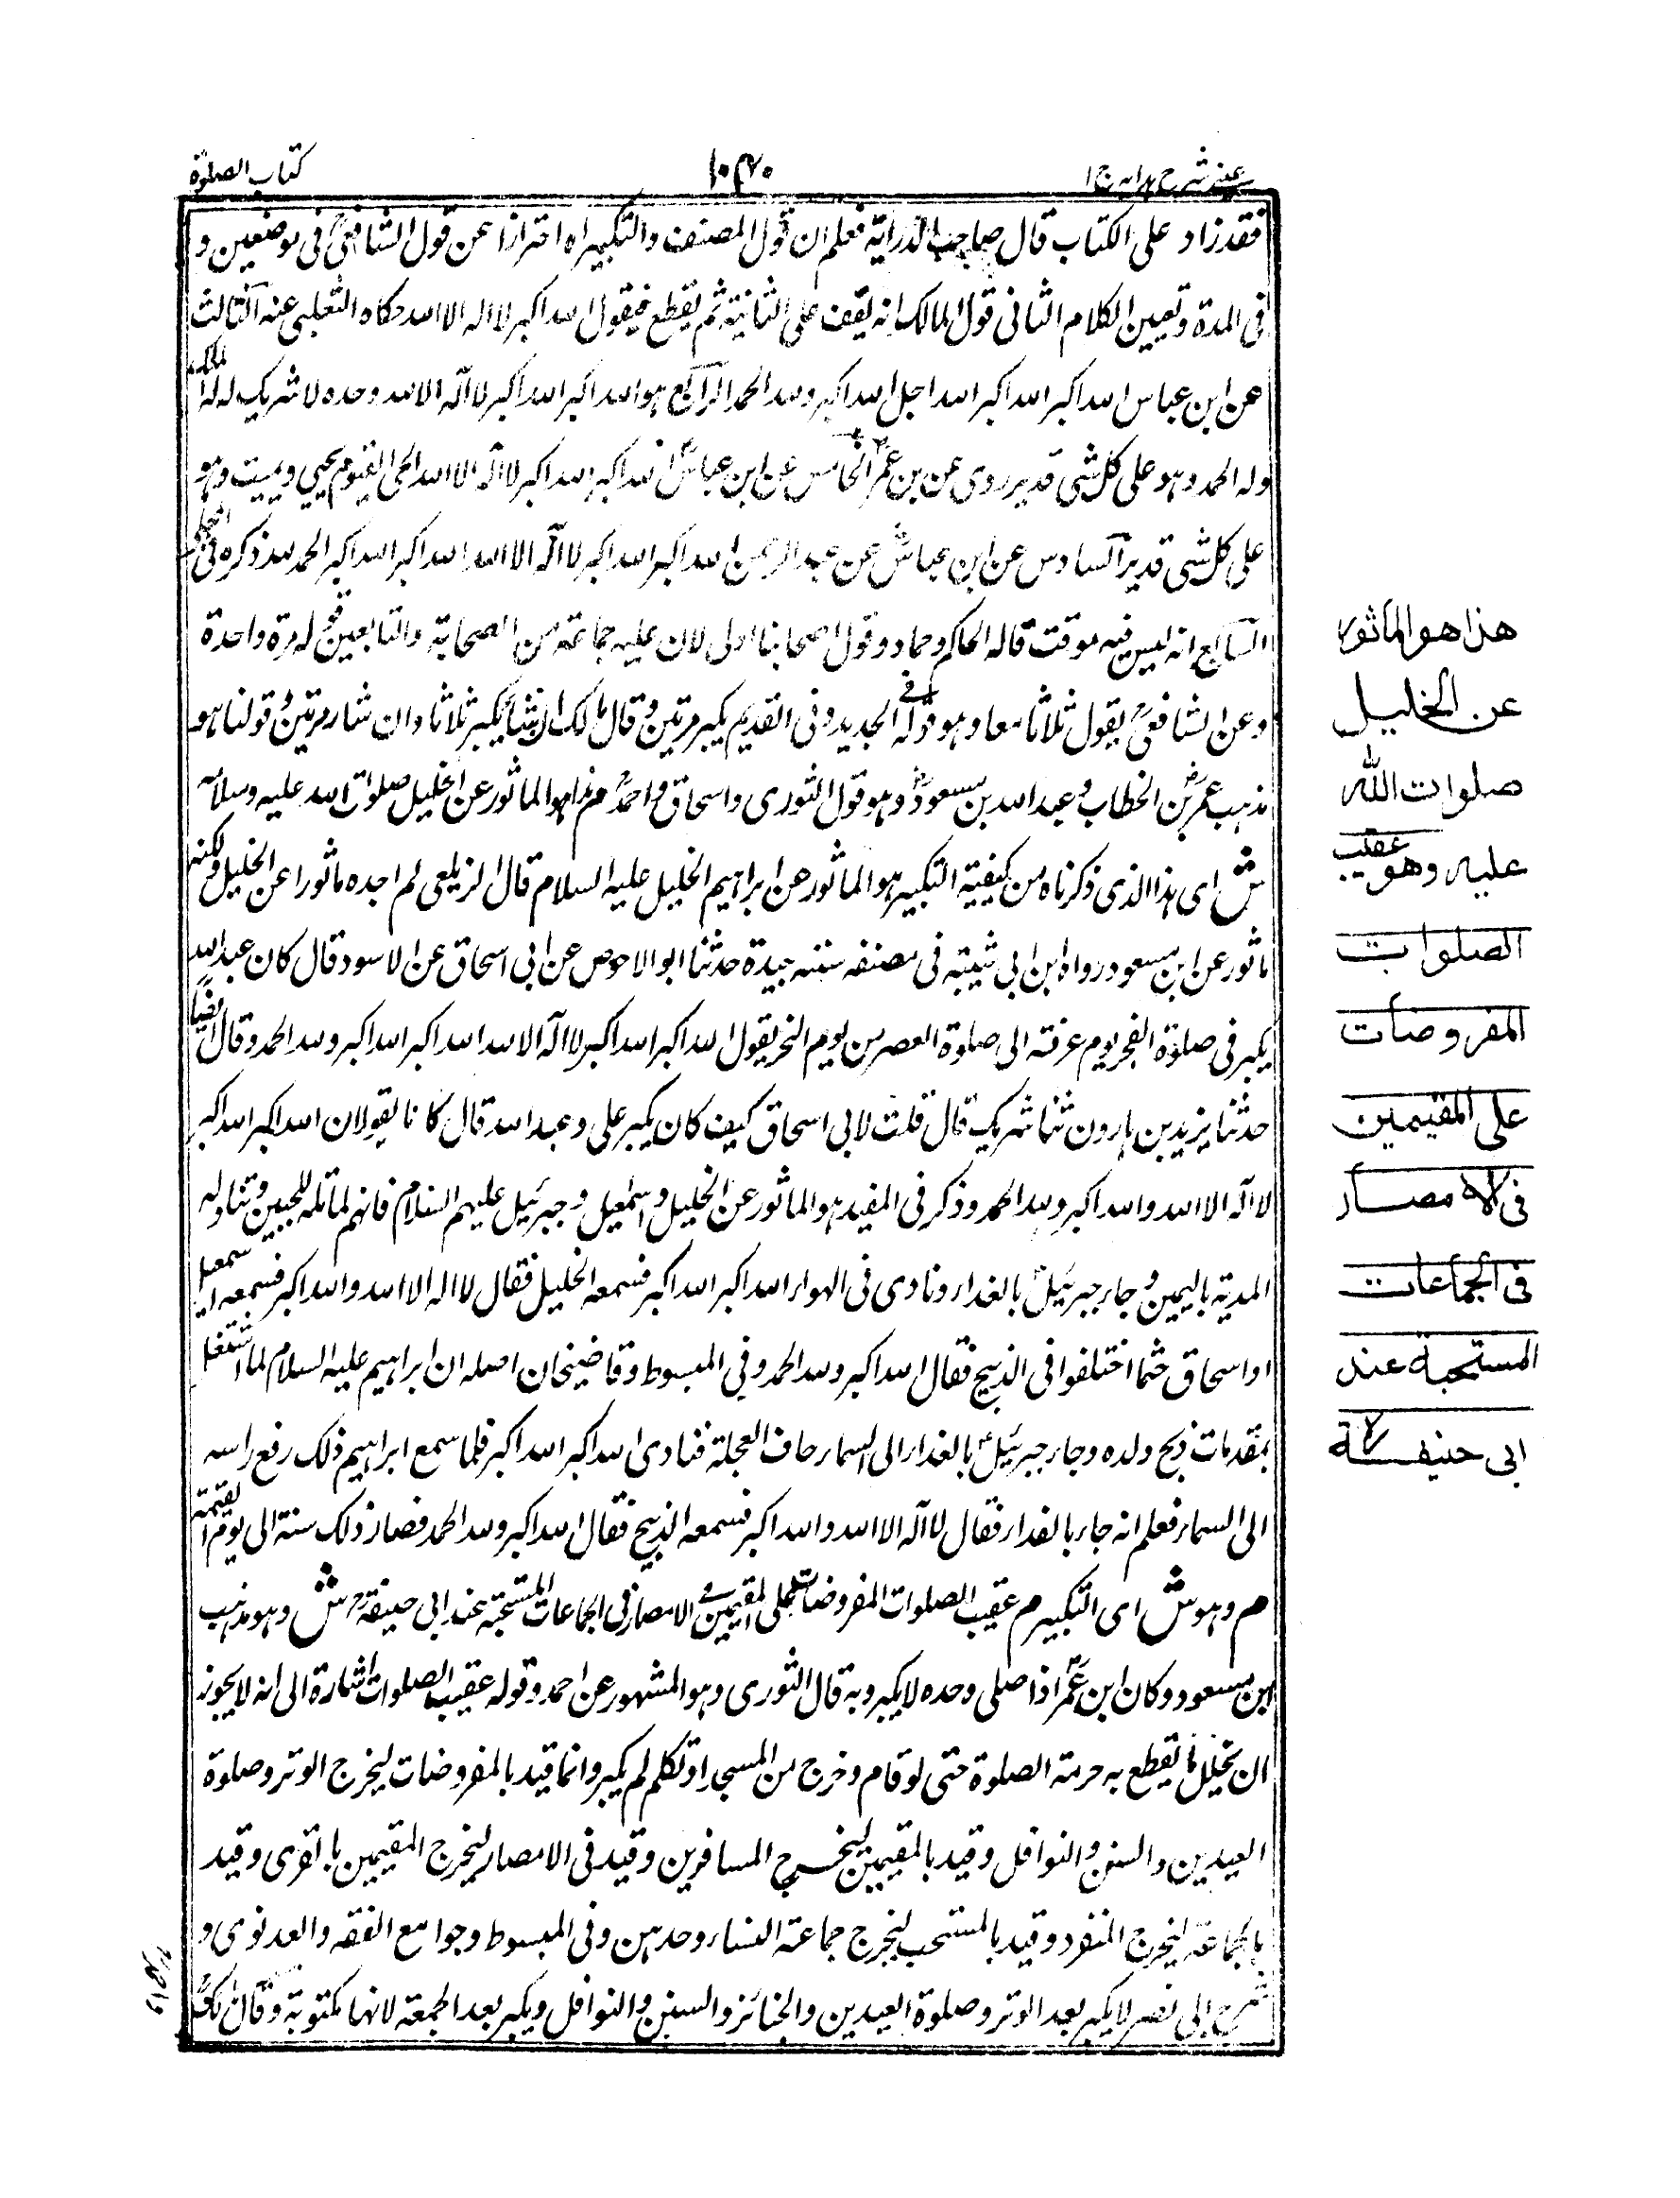 عینے شرح ہدایہ ج ۱
۱۰۲۰
کتاب الصلوٰة
فقد زاد على الكتاب قال صاحب الدراية فعلم ان قول المصنف والتكبير اه احترازا عن قول الشافعي في موضعين و
في المدة وتعيين الكلام الثاني قول المالك انه يقف على الثانية ثم يقطع فيقول الله اكبر لا اله الا الله حكاه الثعلبي عنه الثالث
عن ابن عباس الله اكبر الله اكبر الله اجل الله اكبر ولله الحمد الرابع هو الله اكبر الله اكبر لا اله الا الله وحده لا شريك له له الملك
وله الحمد وهو على كل شي قدير روى عن بن عمر الخامس عن ابن عباس الله اكبر الله اكبر لا اله الا الله الحي القيوم يحيي ويميت وهو
على كل شي قدير السادس عن ابن عباس عن عبد الرحمن الله اكبر الله اكبر لا اله الا الله الله اكبر الله اكبر الحمد لله ذكره في المحلى
السابع انه ليس فيه موقت قاله الحاكم وحماد وقول اصحابنا اولى لان عليه جماعة من الصحابة والتابعين قوله مرة واحدة
وعن الشافعي يقول ثلاثا معا وهو قوله في الجديد وفي القديم يكبر مرتين وقال مالك ان شاء يكبر ثلاثا وان شاء مرتين وقولنا هو
مذهب عمر بن الخطاب وعبد الله بن مسعود وهو قول الثوري واسحاق واحمد م هذا هو الماثور عن الخليل صلوات الله عليه وسلامه
ش اى هذا الذي ذكرناه من كيفية التكبير هو الماثور عن ابراهيم الخليل عليه السلام قال الزيلعي لم اجده ماثورا عن الخليل ولكنه
ماثور عن ابن مسعود رواه ابن ابي شيبة في مصنفه بسند جيدة حدثنا ابو الاحوص عن ابي اسحاق عن الاسود قال كان عبد الله
يكبر في صلوة الفجر يوم عرفة الى صلوة العصر من يوم النحر يقول الله اكبر الله اكبر لا اله الا الله الله اكبر الله اكبر ولله الحمد وقال ايضا
حدثنا يزيد بن هارون ثنا شريك قال قلت لابي اسحاق كيف كان يكبر على وعبد الله قال كانا يقولان الله اكبر الله اكبر
لا اله الا الله والله اكبر ولله الحمد وذكر في المفيد هو الماثور عن الخليل واسمعيل وجبرئيل عليهم السلام فانهم لما تله للجبين وتناوله
المدية باليمين وجاء جبرئيل بالفداء ونادى في الهواء الله اكبر الله اكبر فسمعه الخليل فقال لا اله الا الله والله اكبر فسمعه اسمعيل
او اسحاق حثما اختلفوا في الذبيح فقال الله اكبر ولله الحمد وفي المبسوط وقاضيخان اصله ان ابراهيم عليه السلام لما اشتغل
بمقدمات ذبح ولده وجاء جبرئيل بالفداء الى السماء خاف العجلة فنادى الله اكبر الله اكبر فلما سمع ابراهيم ذلك رفع راسه
الى السماء فعلم انه جاء بالفداء فقال لا اله الا الله والله اكبر فسمعه الذبيح فقال الله اكبر ولله الحمد فصار ذلك سنة الى يوم القيمة
م وهو ش اى التكبير م عقيب الصلوات المفروضات على المقيمين في الامصار في الجماعات المستحبة عند ابي حنيفة ش وهو مذهب
ابن مسعود وكان ابن عمر اذا صلى وحده لا يكبر وبه قال الثوري وهو المشهور عن احمد وقوله عقيب الصلوات اشارة الى انه لا يجوز
ان يخلل ما يقطع به حرمة الصلوة حتى لو قام وخرج من المسجد او تكلم لم يكبر وانما قيد بالمفروضات ليخرج الوتر وصلوة
العيدين والسنن والنوافل وقيد بالمقيمين ليخرج المسافرين وقيد في الامصار ليخرج المقيمين بالقرى وقيد
بالجماعة ليخرج المنفرد وقيد بالمستحب ليخرج جماعة النساء وحدهن وفي المبسوط وجوامع الفقه والعدنوى و
شرح ابي نصر لا يكبر بعد الوتر وصلوة العيدين والجنائز والسنن والنوافل ويكبر بعد الجمعة لانها مكتوبة وقال مالك
هذا هو المأثور
عن الخليل
صلوات الله
عليه وهو عقيب
الصلوات
المفروضات
على المقيمين
في الامصار
في الجماعات
المستحبة عند
ابي حنيفة